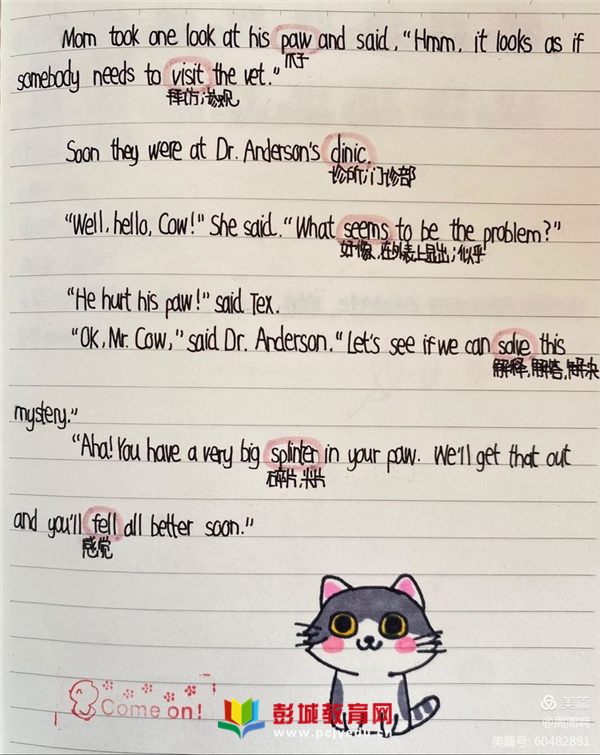 Mom took one look at his paw and said, "Hmm, it looks as if
爪子
somebody needs to visit the vet."
拜访;参观
Soon they were at Dr. Anderson's clinic.
诊所;门诊部
"Well, hello, Cow!" She said. "What seems to be the problem?"
好像,在外表上显出;似乎
"He hurt his paw!" said Tex.
"OK, Mr. Cow," said Dr. Anderson. "Let's see if we can solve this
解释,解答,解决
mystery."
"Aha! You have a very big splinter in your paw. We'll get that out
碎片,木片
and you'll fell all better soon."
感觉
Come on!
彭城教育网
www.pcjyedu.cn
美篇
美篇号: 60482891